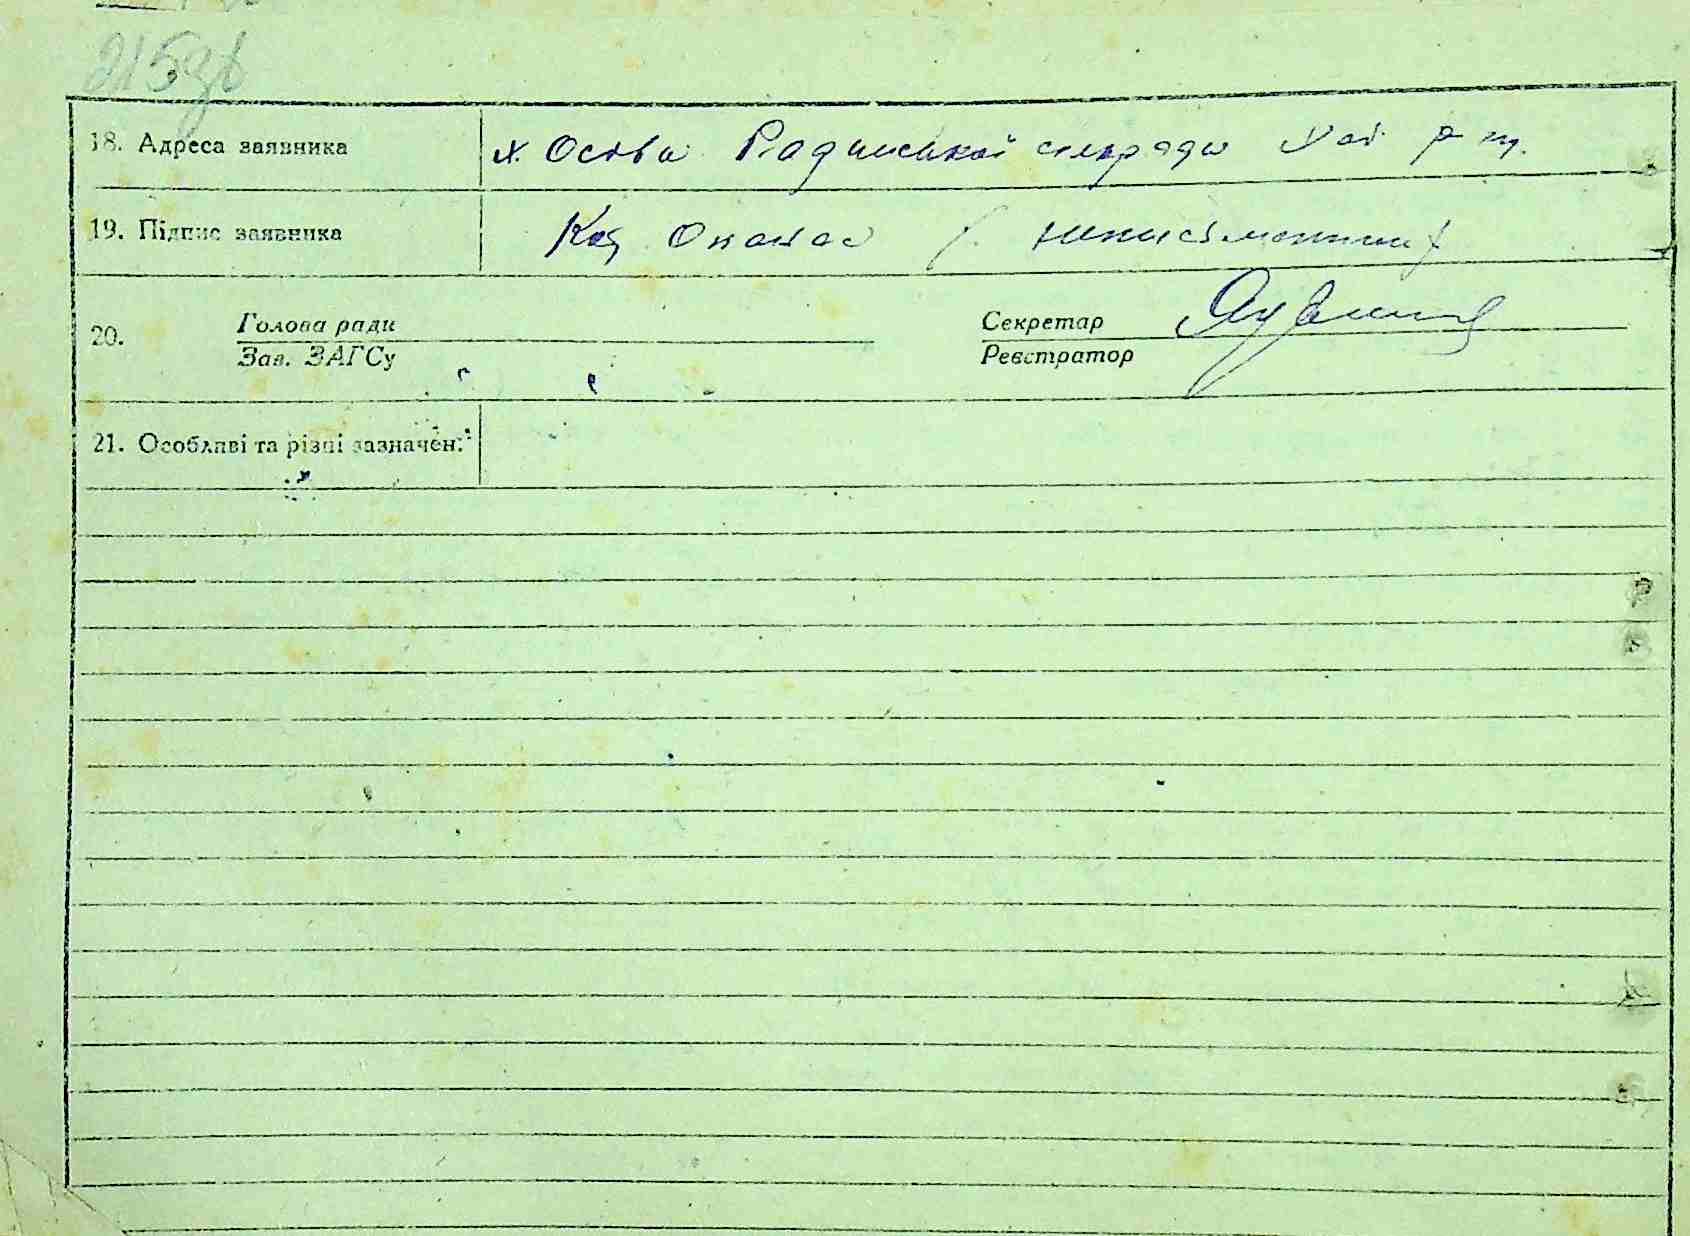 215зв
18. Адреса заявника х. Осова Радинської сільради р-ну.
19. Підпис заявника Коц Опанас / неписьменний /
20. Голова ради Секретар
Зав. ЗАГСу Реєстратор
21. Особливі та різні зазначен.